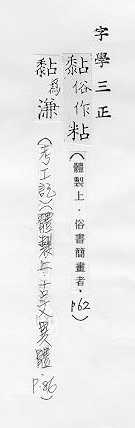 字學三正
黏俗作粘(體製上・俗書簡畫者・P.62)
黏為濂(考工記)(體製上・古文異體・P.86)